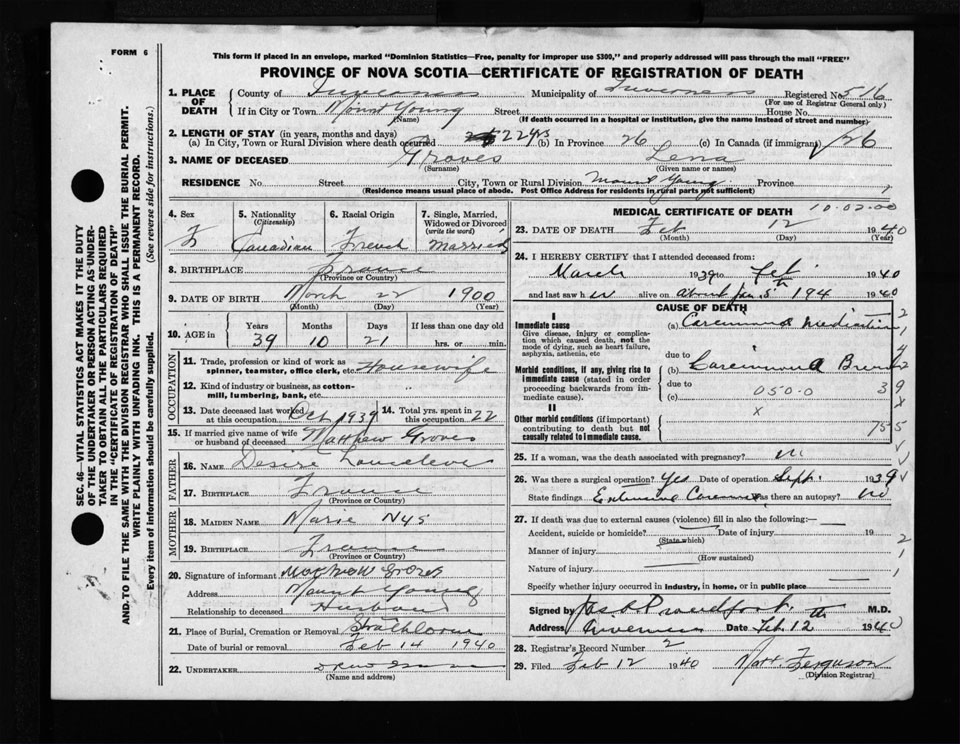 FORM 6
This form if placed in an envelope, marked "Dominion Statistics—Free, penalty for improper use $300," and properly addressed will pass through the mail "FREE"
PROVINCE OF NOVA SCOTIA—CERTIFICATE OF REGISTRATION OF DEATH
SEC. 46—VITAL STATISTICS ACT MAKES IT THE DUTY
OF THE UNDERTAKER OR PERSON ACTING AS UNDER-
TAKER TO OBTAIN ALL THE PARTICULARS REQUIRED
IN THE "CERTIFICATE OF REGISTRATION OF DEATH"
AND TO FILE THE SAME WITH THE DIVISION REGISTRAR WHO SHALL ISSUE THE BURIAL PERMIT.
WRITE PLAINLY WITH UNFADING INK. THIS IS A PERMANENT RECORD.
Every item of information should be carefully supplied. (See reverse side for instructions.)
1. PLACE OF DEATH
County of Inverness Municipality of Inverness Registered No. 516
(For use of Registrar General only)
If in City or Town Mount Young Street House No.
(Name) (If death occurred in a hospital or institution, give the name instead of street and number)
2. LENGTH OF STAY (in years, months and days)
(a) In City, Town or Rural Division where death occurred 22 yrs (b) In Province 26 (c) In Canada (if immigrant) 26
3. NAME OF DECEASED Groves Lena
(Surname) (Given name or names)
RESIDENCE No. Street City, Town or Rural Division Mount Young Province
(Residence means usual place of abode. Post Office Address for residents in rural parts not sufficient)
4. Sex F
5. Nationality (Citizenship) Canadian
6. Racial Origin French
7. Single, Married, Widowed or Divorced (write the word) Married
8. BIRTHPLACE France
(Province or Country)
9. DATE OF BIRTH March 22 1900
(Month) (Day) (Year)
10. AGE in Years Months Days If less than one day old
39 10 21 hrs. or min.
OCCUPATION
11. Trade, profession or kind of work as spinner, teamster, office clerk, etc. Housewife
12. Kind of industry or business, as cotton-mill, lumbering, bank, etc. "
13. Date deceased last worked at this occupation Oct 1939
14. Total yrs. spent in this occupation 22
15. If married give name of wife or husband of deceased Matthew Groves
FATHER
16. NAME Desire
17. BIRTHPLACE France
(Province or Country)
MOTHER
18. MAIDEN NAME Marie Nys
19. BIRTHPLACE France
(Province or Country)
20. Signature of informant Matthew Groves
Address Mount Young
Relationship to deceased Husband
21. Place of Burial, Cremation or Removal Strathlorne
Date of burial or removal Feb 14 1940
22. UNDERTAKER
(Name and address)
MEDICAL CERTIFICATE OF DEATH 10.02.00
23. DATE OF DEATH Feb 12 1940
(Month) (Day) (Year)
24. I HEREBY CERTIFY that I attended deceased from:
March 1939 to Feb 1940
and last saw h er alive on about Jan. 5th 194 1940
CAUSE OF DEATH
I
Immediate cause
Give disease, injury or complication which caused death, not the mode of dying, such as heart failure, asphyxia, asthenia, etc
(a) Carcinoma
due to
Morbid conditions, if any, giving rise to immediate cause (stated in order proceeding backwards from immediate cause).
(b) Carcinoma Breast
due to
(c) 050.0 39
x
II
Other morbid conditions (if important) contributing to death but not causally related to immediate cause.
25. If a woman, was the death associated with pregnancy?
26. Was there a surgical operation? Yes Date of operation Sept. 1939
State findings Extensive Carcinoma Was there an autopsy? No
27. If death was due to external causes (violence) fill in also the following:—
Accident, suicide or homicide? Date of injury 19
(State which)
Manner of injury
(How sustained)
Nature of injury
Specify whether injury occurred in industry, in home, or in public place
Signed by Jas. A. Proudfoot M.D.
Address Inverness Date Feb 12th 1940
28. Registrar's Record Number 2
29. Filed Feb 12 1940 Ferguson
(Division Registrar)